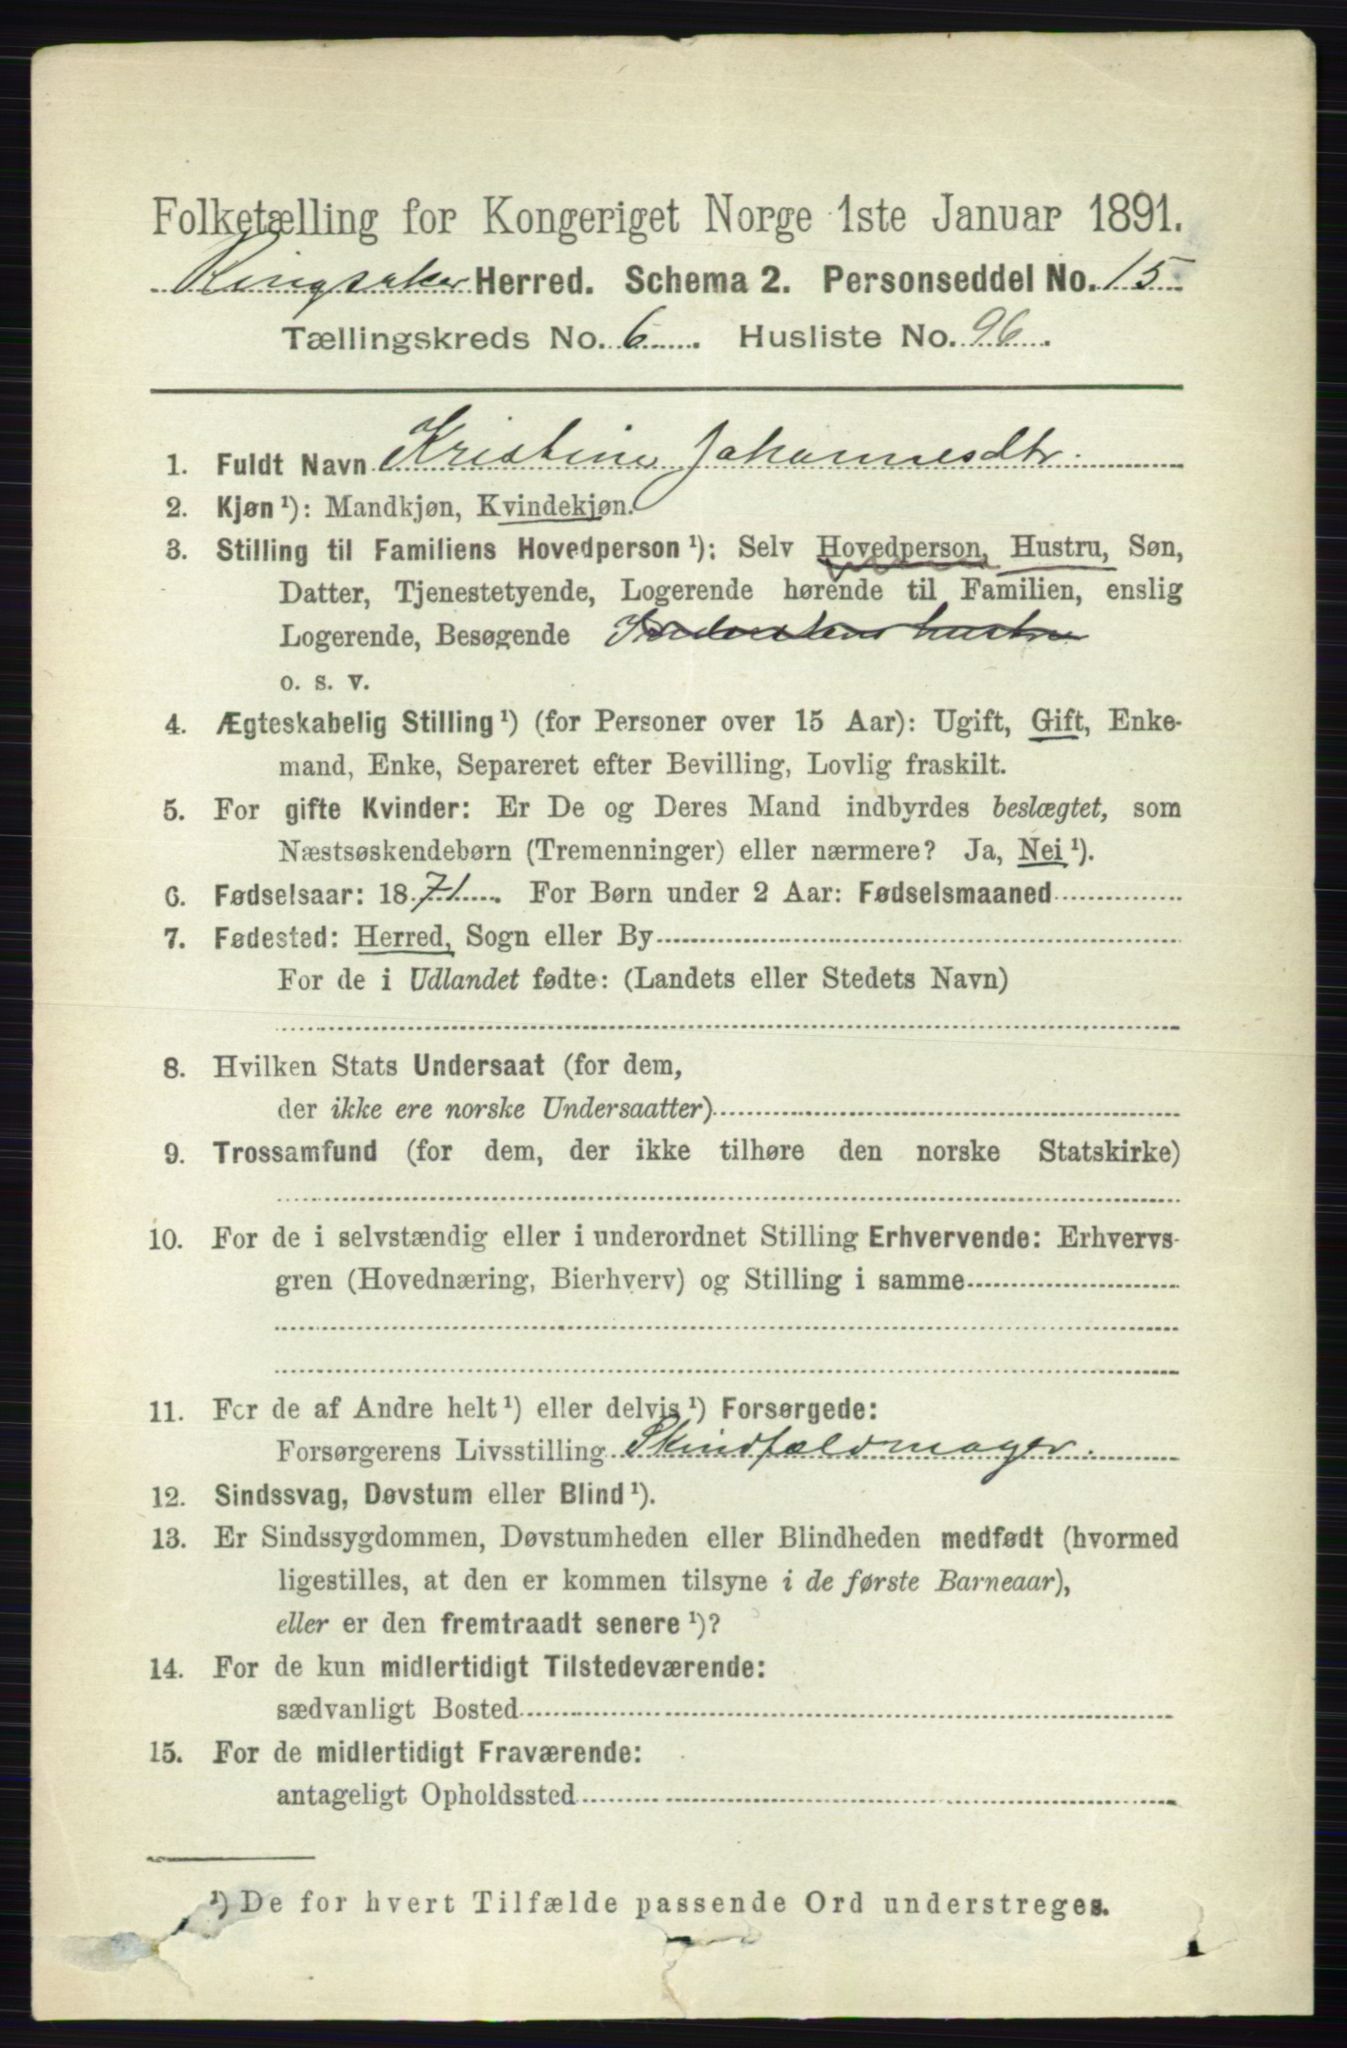 Folketælling for Kongeriget Norge 1ste Januar 1891.
Ringsaker Herred. Schema 2. Personseddel No. 15
Tællingskreds No. 6. Husliste No. 96.
1. Fuldt Navn Kristine Johannesdtr.
2. Kjøn ¹): Mandkjøn, Kvindekjøn.
3. Stilling til Familiens Hovedperson ¹): Selv Hovedperson, Hustru, Søn,
Datter, Tjenestetyende, Logerende hørende til Familien, enslig
Logerende, Besøgende
o. s. v.
4. Ægteskabelig Stilling ¹) (for Personer over 15 Aar): Ugift, Gift, Enke-
mand, Enke, Separeret efter Bevilling, Lovlig fraskilt.
5. For gifte Kvinder: Er De og Deres Mand indbyrdes beslægtet, som
Næstsøskendebørn (Tremenninger) eller nærmere? Ja, Nei ¹).
6. Fødselsaar: 1871. For Børn under 2 Aar: Fødselsmaaned
7. Fødested: Herred, Sogn eller By
For de i Udlandet fødte: (Landets eller Stedets Navn)
8. Hvilken Stats Undersaat (for dem,
der ikke ere norske Undersaatter)
9. Trossamfund (for dem, der ikke tilhøre den norske Statskirke)
10. For de i selvstændig eller i underordnet Stilling Erhvervende: Erhvervs-
gren (Hovednæring, Bierhverv) og Stilling i samme
11. For de af Andre helt ¹) eller delvis ¹) Forsørgede:
Forsørgerens Livsstilling Skindfældmager.
12. Sindssvag, Døvstum eller Blind ¹).
13. Er Sindssygdommen, Døvstumheden eller Blindheden medfødt (hvormed
ligestilles, at den er kommen tilsyne i de første Barneaar),
eller er den fremtraadt senere ¹)?
14. For de kun midlertidigt Tilstedeværende:
sædvanligt Bosted
15. For de midlertidigt Fraværende:
antageligt Opholdssted
¹) De for hvert Tilfælde passende Ord understreges.